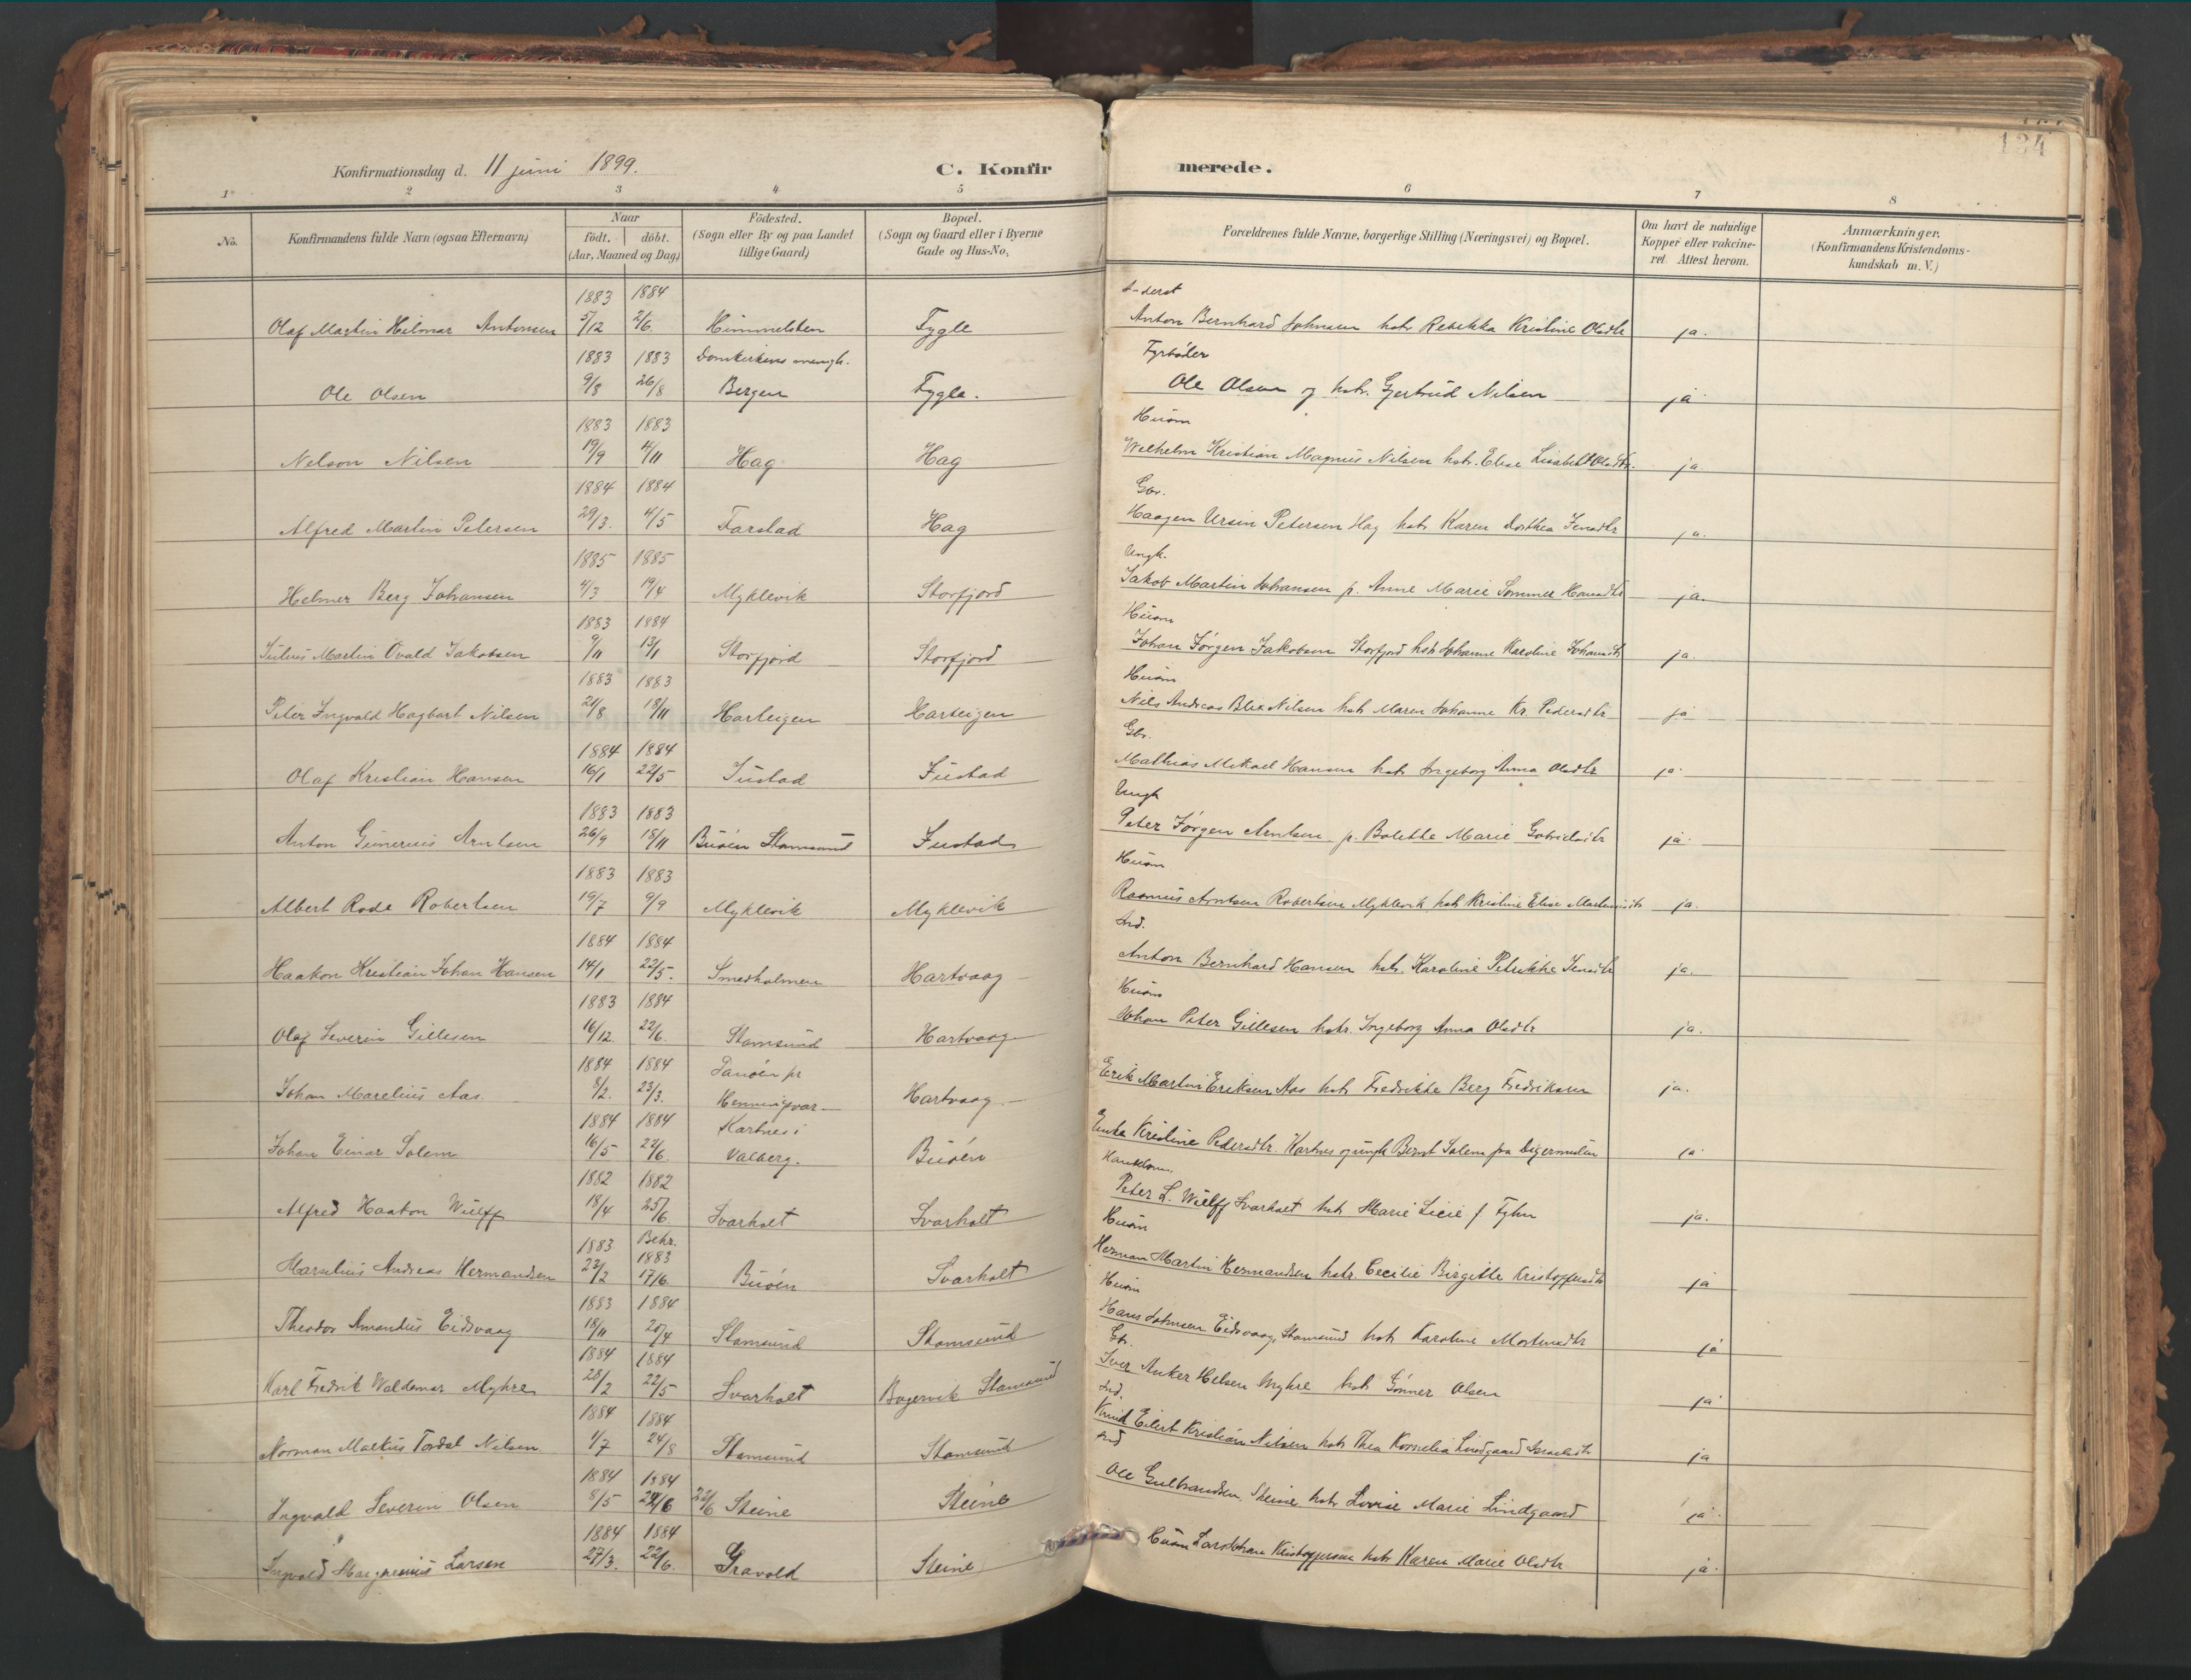 134
Konfirmationsdag d. 11 juni 1899.
C. Konfirmerede.
1 2 3 4 5 6 7 8
No.
Konfirmandens fulde Navn (ogsaa Efternavn)
Naar
födt. döbt.
(Aar, Maaned og Dag)
Födested.
(Sogn eller By og paa Landet
tillige Gaard)
Bopæl.
(Sogn og Gaard eller i Byerne
Gade og Hus-No.
Forældrenes fulde Navne, borgerlige Stilling (Næringsvei) og Bopæl.
Om havt de naturlige
Kopper eller vakcine-
ret. Attest herom.
Anmærkninger.
(Konfirmandens Kristendoms-
kundskab m. V.)
1883 1884
Olaf Martin Hilmar Antonsen 5/12 2/6 Himmelsten Fygle Anton Bernhard Johnsen hstr Rebekka Kristine Olsdtr ja.
1883 1883 Domkirkens Fyrböder
Ole Olsen 9/8 26/8 Bergen Fygle. Ole Olsen og hstr. Gjertrud Nilsen ja
1883 1883 Husm
Nelson Nilsen 19/9 4/11 Hag Hag Wilhelm Kristian Magnus Nilsen hstr. Elise Lisabeth Olsdtr. ja
1884 1884 Gbr.
Alfred Martin Petersen 29/3. 4/5 Farstad Hag Haagen Ursin Petersen Hag hstr Karen Dorthea Jensdtr ja.
1885 1885 Ungk.
Helmer Berg Johansen 4/3 19/4 Myklevik Storfjord Jakob Martin Johansen p. Anne Marie Sommer Hansdtr ja.
1883 1884 Husm
Julius Martin Ovald Jakobsen 9/11 13/1 Storfjord Storfjord Johan Jörgen Jakobsen Storfjord hstr Johanne Karoline Johansdtr ja.
1883 1883 Husm
Peter Ingvald Hagbart Nilsen 21/8 18/11 Harteigen Harteigen Nils Andreas Blix Nilsen hstr Maren Johanne Kr. Pedersdtr ja
1884 1884 Gbr.
Olaf Kristian Hansen 16/1 22/5 Justad Justad Mathias Mikael Hansen hstr Ingeborg Anna Olsdtr ja
1883 1883 Ungk
Anton Gunerius Arntsen 26/9 18/11 Buöen Stamsund Justad Peter Jörgen Arntsen p. Bolette Marie Gabrielsdtr ja
1883 1883 Husm
Albert Rode Robertsen 19/7 9/9 Myklevik Myklevik Rasmus Arntsen Robertsen Myklevik hstr Kristine Elise ja.
1884 1884 Ind.
Haakon Kristian Johan Hansen 14/1 22/5. Smedholmen Hartvaag Anton Bernhard Hansen hstr. Karoline Petrikke Jensdtr ja.
1883 1884 Husm
Olaf Severin Gillesen 16/12. 22/6. Stamsund Hartvaag Johan Peter Gillesen hstr. Ingeborg Anna Olsdtr ja.
1884 1884 pr
Johan Marelius Aas. 8/2. 23/3. Henningsvær Hartvaag Erik Martin Eriksen Aas hstr Fredrikke Berg Fredriksen ja.
1884 1884 Hartnes i
Johan Einar Solem 16/5 22/6. Valberg. Buöen Kristine Pedersdtr. Hartnes og ungk Bernt Solem fra Digermulen ja
1882 1882 Handelsm.
Alfred Haakon Wulff 18/4 25/6 Svarholt Svarholt Peter L. Wulff Svarholt hstr Marie Licie f Fyhn ja.
1883 Bekr. 1883 Husm
Marelius Andreas Hermandsen 22/2 17/6. Buöen Svarholt Herman Martin Hermandsen hstr. Cecilie Birgitte Kristoffersdtr ja
1883 1884 Husm
Theodor Amandus Eidsvaag 18/11 20/4 Stamsund Stamsund Hans Johnsen Eidsvaag, Stamsund hstr Karoline Mortensdtr ja
1884 1884 Gb.
Karl Fredrik Waldemar Myhre 28/2 22/5 Svarholt Stamsund Iver Anker Helsen Myhre hstr Gunner Olsen ja
1884 1884 Ind.
Norman Markus Tordal Nilsen 1/7 24/8 Stamsund Stamsund Knud Eilert Kristian Nilsen hstr Thea Kornelia Lindgaard Israelsdtr ja
1884 1884 Ind
Ingvald Severin Olsen 8/5 22/6 22/6 Steine Steine Ole Gulbrandsen, Steine hstr Lovise Marie Lindgaard ja
1884 1884
Ingvald Margrenius Larsen 27/3. 22/6. Gravold Steine Husm Lars Johan Kristoffersen hstr Karen Marie Olsdtr ja